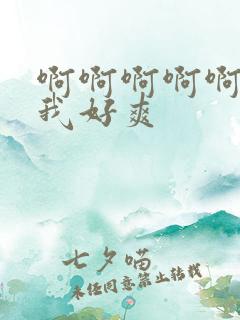 啊啊啊啊啊
我好爽
七夕喵
未经同意禁止转载